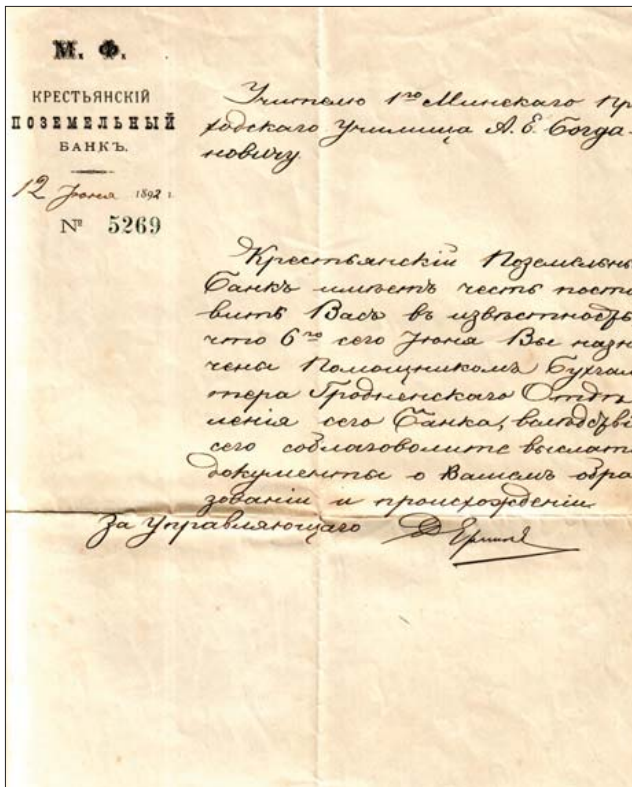 М. Ф.
КРЕСТЬЯНСКІЙ
ПОЗЕМЕЛЬНЫЙ
БАНКЪ.
12 Іюня 1892 г.
№ 5269
Учителю 1го Минскаго При
ходскаго Училища А. Е. Богда-
новичу.
Крестьянскій Поземельны
Банкъ имѣетъ честь поста
вить Васъ въ извѣстность,
что 6го сего Іюня Вы назн
чены Помощникомъ Бухгал
тера Гродненскаго Отдѣ
ленія сего Банка, вслѣдстві
сего соблаговолите выслать
документы о Вашемъ обра
зованіи и происхожденіи.
За Управляющаго